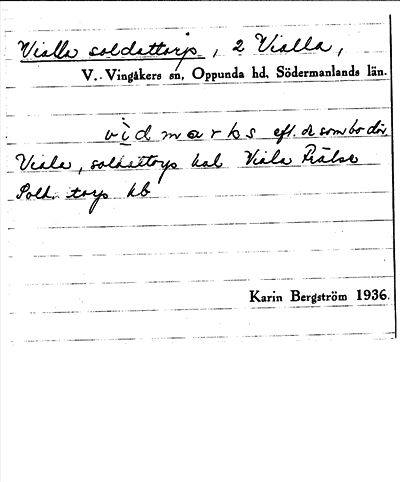 Vialla soldattorp, 2 Vialla,
V. Vingåkers sn, Oppunda hd, Södermanlands län.
vidmarks eft. de som bo där,
Viala, soldattorp hal Viala Frälse
Sold. torp hb
Karin Bergström 1936.